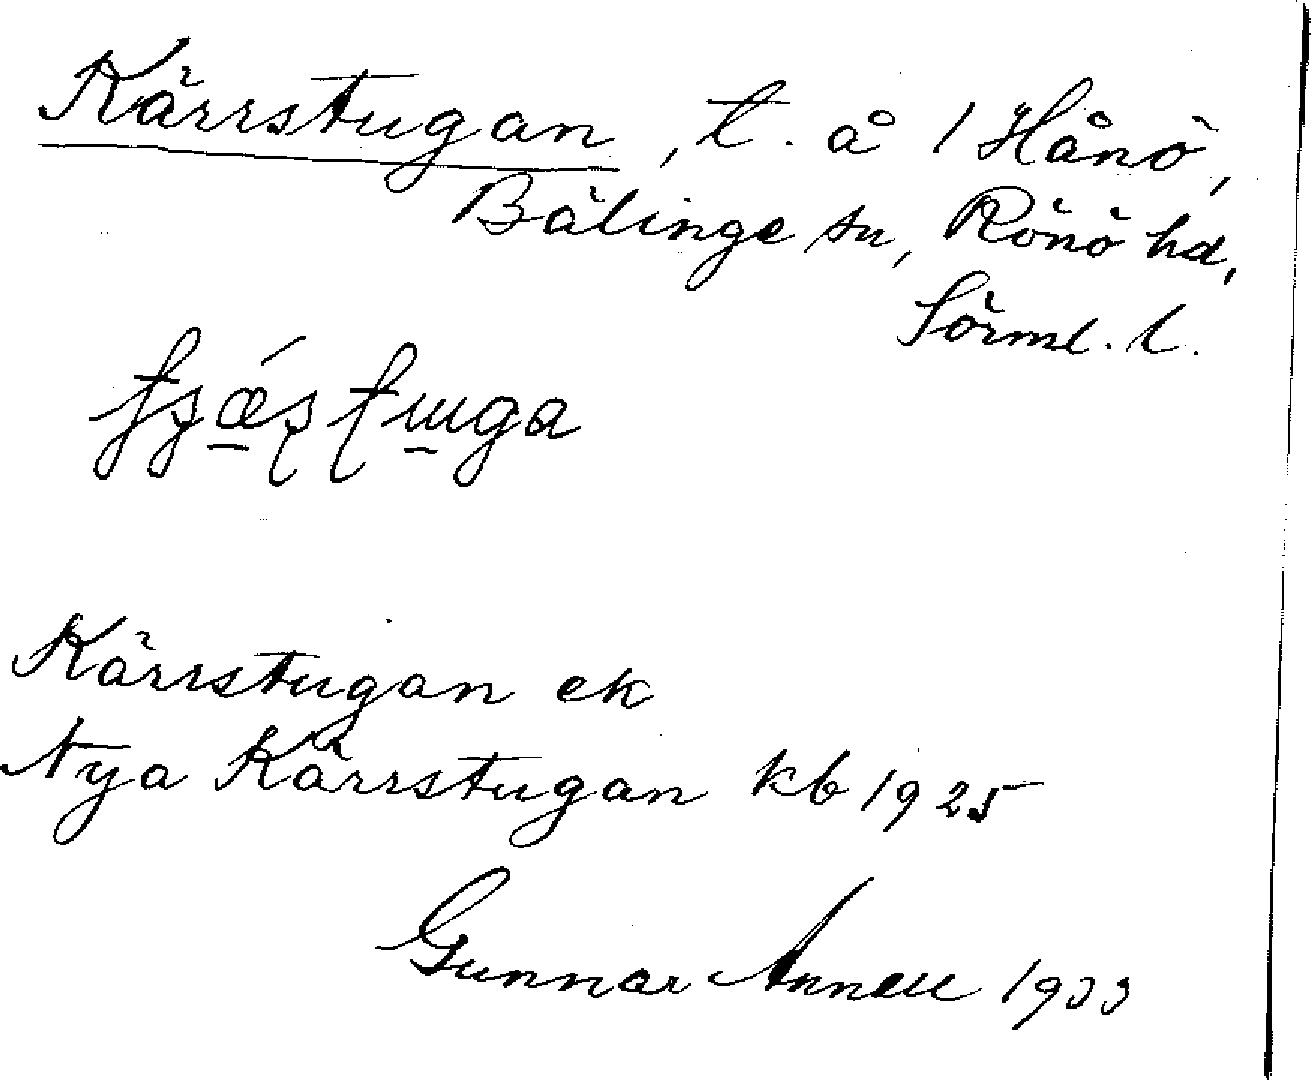 Kärrstugan, t. å 1 Hånö,
Bälinge sn, Rönö hd,
Sörml. l.
Kärrstugan ek
Nya Kärrstugan kb 1925
Gunnar Annell 1933